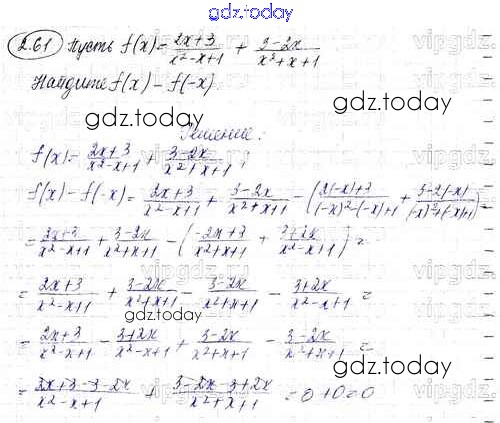 gdz.today
2.61 Пусть f(x)= (2x+3)/(x²-x+1) + (3-2x)/(x²+x+1)
Найдите f(x) - f(-x)
gdz.today
Решение:
f(x)= (2x+3)/(x²-x+1) + (3-2x)/(x²+x+1);
f(x) - f(-x) = (2x+3)/(x²-x+1) + (3-2x)/(x²+x+1) - (2(-x)+3)/((-x)²-(-x)+1 + (3-2(-x))/((-x)²+(-x)+1) =
= (2x+3)/(x²-x+1) + (3-2x)/(x²+x+1) - ((-2x+3)/(x²+x+1) + (3+2x)/(x²-x+1)) =
= (2x+3)/(x²-x+1) + (3-2x)/(x²+x+1) - (3-2x)/(x²+x+1) - (3+2x)/(x²-x+1) =
gdz.today
= (2x+3)/(x²-x+1) - (3+2x)/(x²-x+1) + (3-2x)/(x²+x+1) - (3-2x)/(x²+x+1) =
= (2x+3-3-2x)/(x²-x+1) + (3-2x-3+2x)/(x²+x+1) = 0+0=0
gdz.today